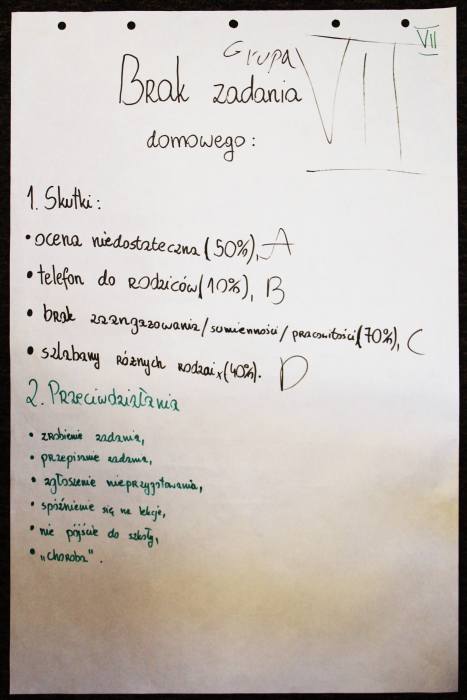 VII
Grupa VII
Brak zadania
domowego:
1. Skutki:
• ocena niedostateczna (50%), A
• telefon do rodziców (10%), B
• brak zaangażowania/sumienności/pracowitości (70%), C
• szlabany różnych rodzai x (40%). D
2. Przeciwdziałania
• zrobienie zadania,
• przepisanie zadania,
• zgłoszenie nieprzygotowania,
• spóźnienie się na lekcje,
• nie pójście do szkoły,
• „choroba".